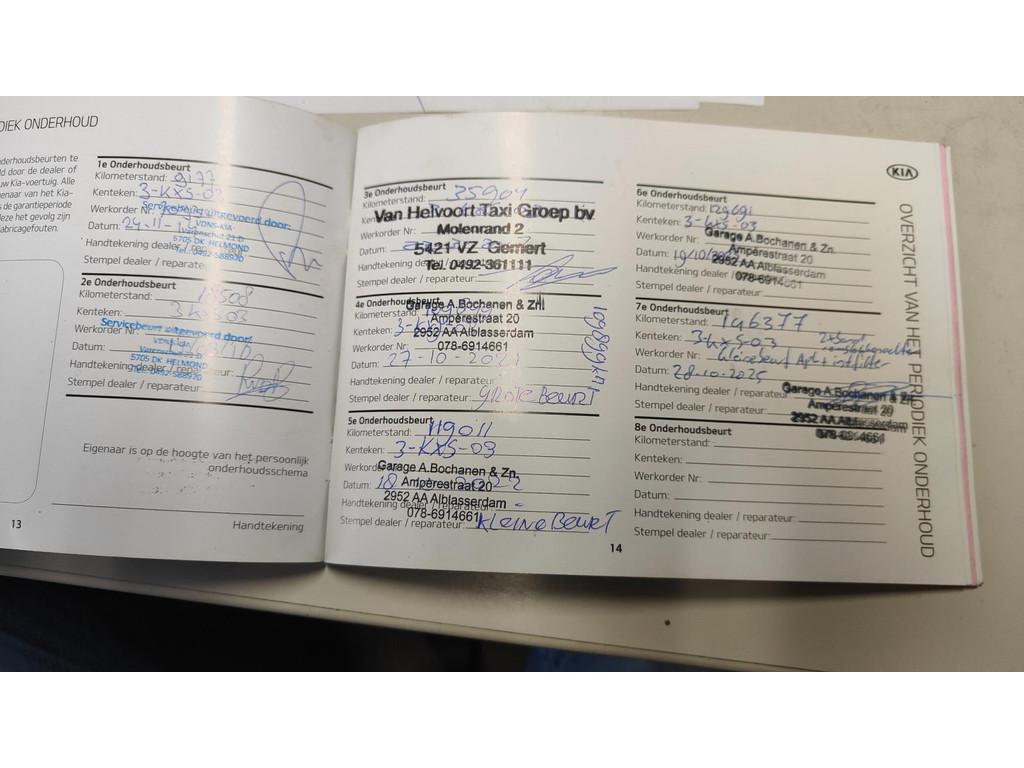 DIEK ONDERHOUD
nderhoudsbeurten te
ld door de dealer of
uw Kia-voertuig. Alle
enaar van het Kia-
s de garantieperiode
deze het gevolg zijn
fabricagefouten.
13
1e Onderhoudsbeurt
Kilometerstand: 9177
Kenteken: 3-KXS-03
Werkorder Nr.
Servicebeurt uitgevoerd door:
VDNS-KIA
Varenschut 21 D
5705 DK HELMOND
Tel. 0492-588970
Datum: 29-11-
Handtekening dealer / reparateur
Stempel dealer / reparateur
2e Onderhoudsbeurt
Kilometerstand:
Kenteken: 3 KXS-03
Werkorder Nr.
Servicebeurt uitgevoerd door:
VDNS-KIA
Varenschut 21 D
5705 DK HELMOND
Tel. 0492-588970
Datum:
Handtekening dealer / reparateur:
Stempel dealer / reparateur:
Eigenaar is op de hoogte van het persoonlijk
onderhoudsschema
Handtekening
3e Onderhoudsbeurt
Kilometerstand: 35904
Van Helvoort Taxi Groep bv
Molenrand 2
5421 VZ Gemert
Tel. 0492-361111
Werkorder Nr:
Datum:
Handtekening dealer
Stempel dealer / reparateur:
4e Onderhoudsbeurt
Kilometerstand:
Kenteken: 3-
Werkorder Nr:
Garage A.Bochanen & Zn.
Ampèrestraat 20
2952 AA Alblasserdam
078-6914661
109899km
Datum: 27-10-2021
Handtekening dealer / reparateur:
Stempel dealer / reparateur: GROTE BEURT
5e Onderhoudsbeurt
Kilometerstand: 119011
Kenteken: 3-KXS-03
Garage A.Bochanen & Zn.
Ampèrestraat 20
2952 AA Alblasserdam
078-6914661
Datum: 18
Handtekening dealer / reparateur:
Stempel dealer / reparateur: KLEINE BEURT
14
6e Onderhoudsbeurt
Kilometerstand: 129691
Kenteken: 3-KXS-03
Werkorder Nr:
Garage A.Bochanen & Zn.
Ampèrestraat 20
2952 AA Alblasserdam
078-6914661
Datum: 19/10/
Handtekening dealer / reparateur:
Stempel dealer / reparateur:
7e Onderhoudsbeurt
Kilometerstand: 146377
Kenteken: 3-KXS-03
Werkorder Nr: kleinebeurt
Datum: 28-10-2025
Handtekening dealer / reparateur:
Stempel dealer / reparateur:
Garage A.Bochanen & Zn.
Ampèrestraat 20
2952 AA Alblasserdam
078-6914661
8e Onderhoudsbeurt
Kilometerstand:
Kenteken:
Werkorder Nr:
Datum:
Handtekening dealer / reparateur:
Stempel dealer / reparateur:
KIA
OVERZICHT VAN HET PERIODIEK ONDERHOUD